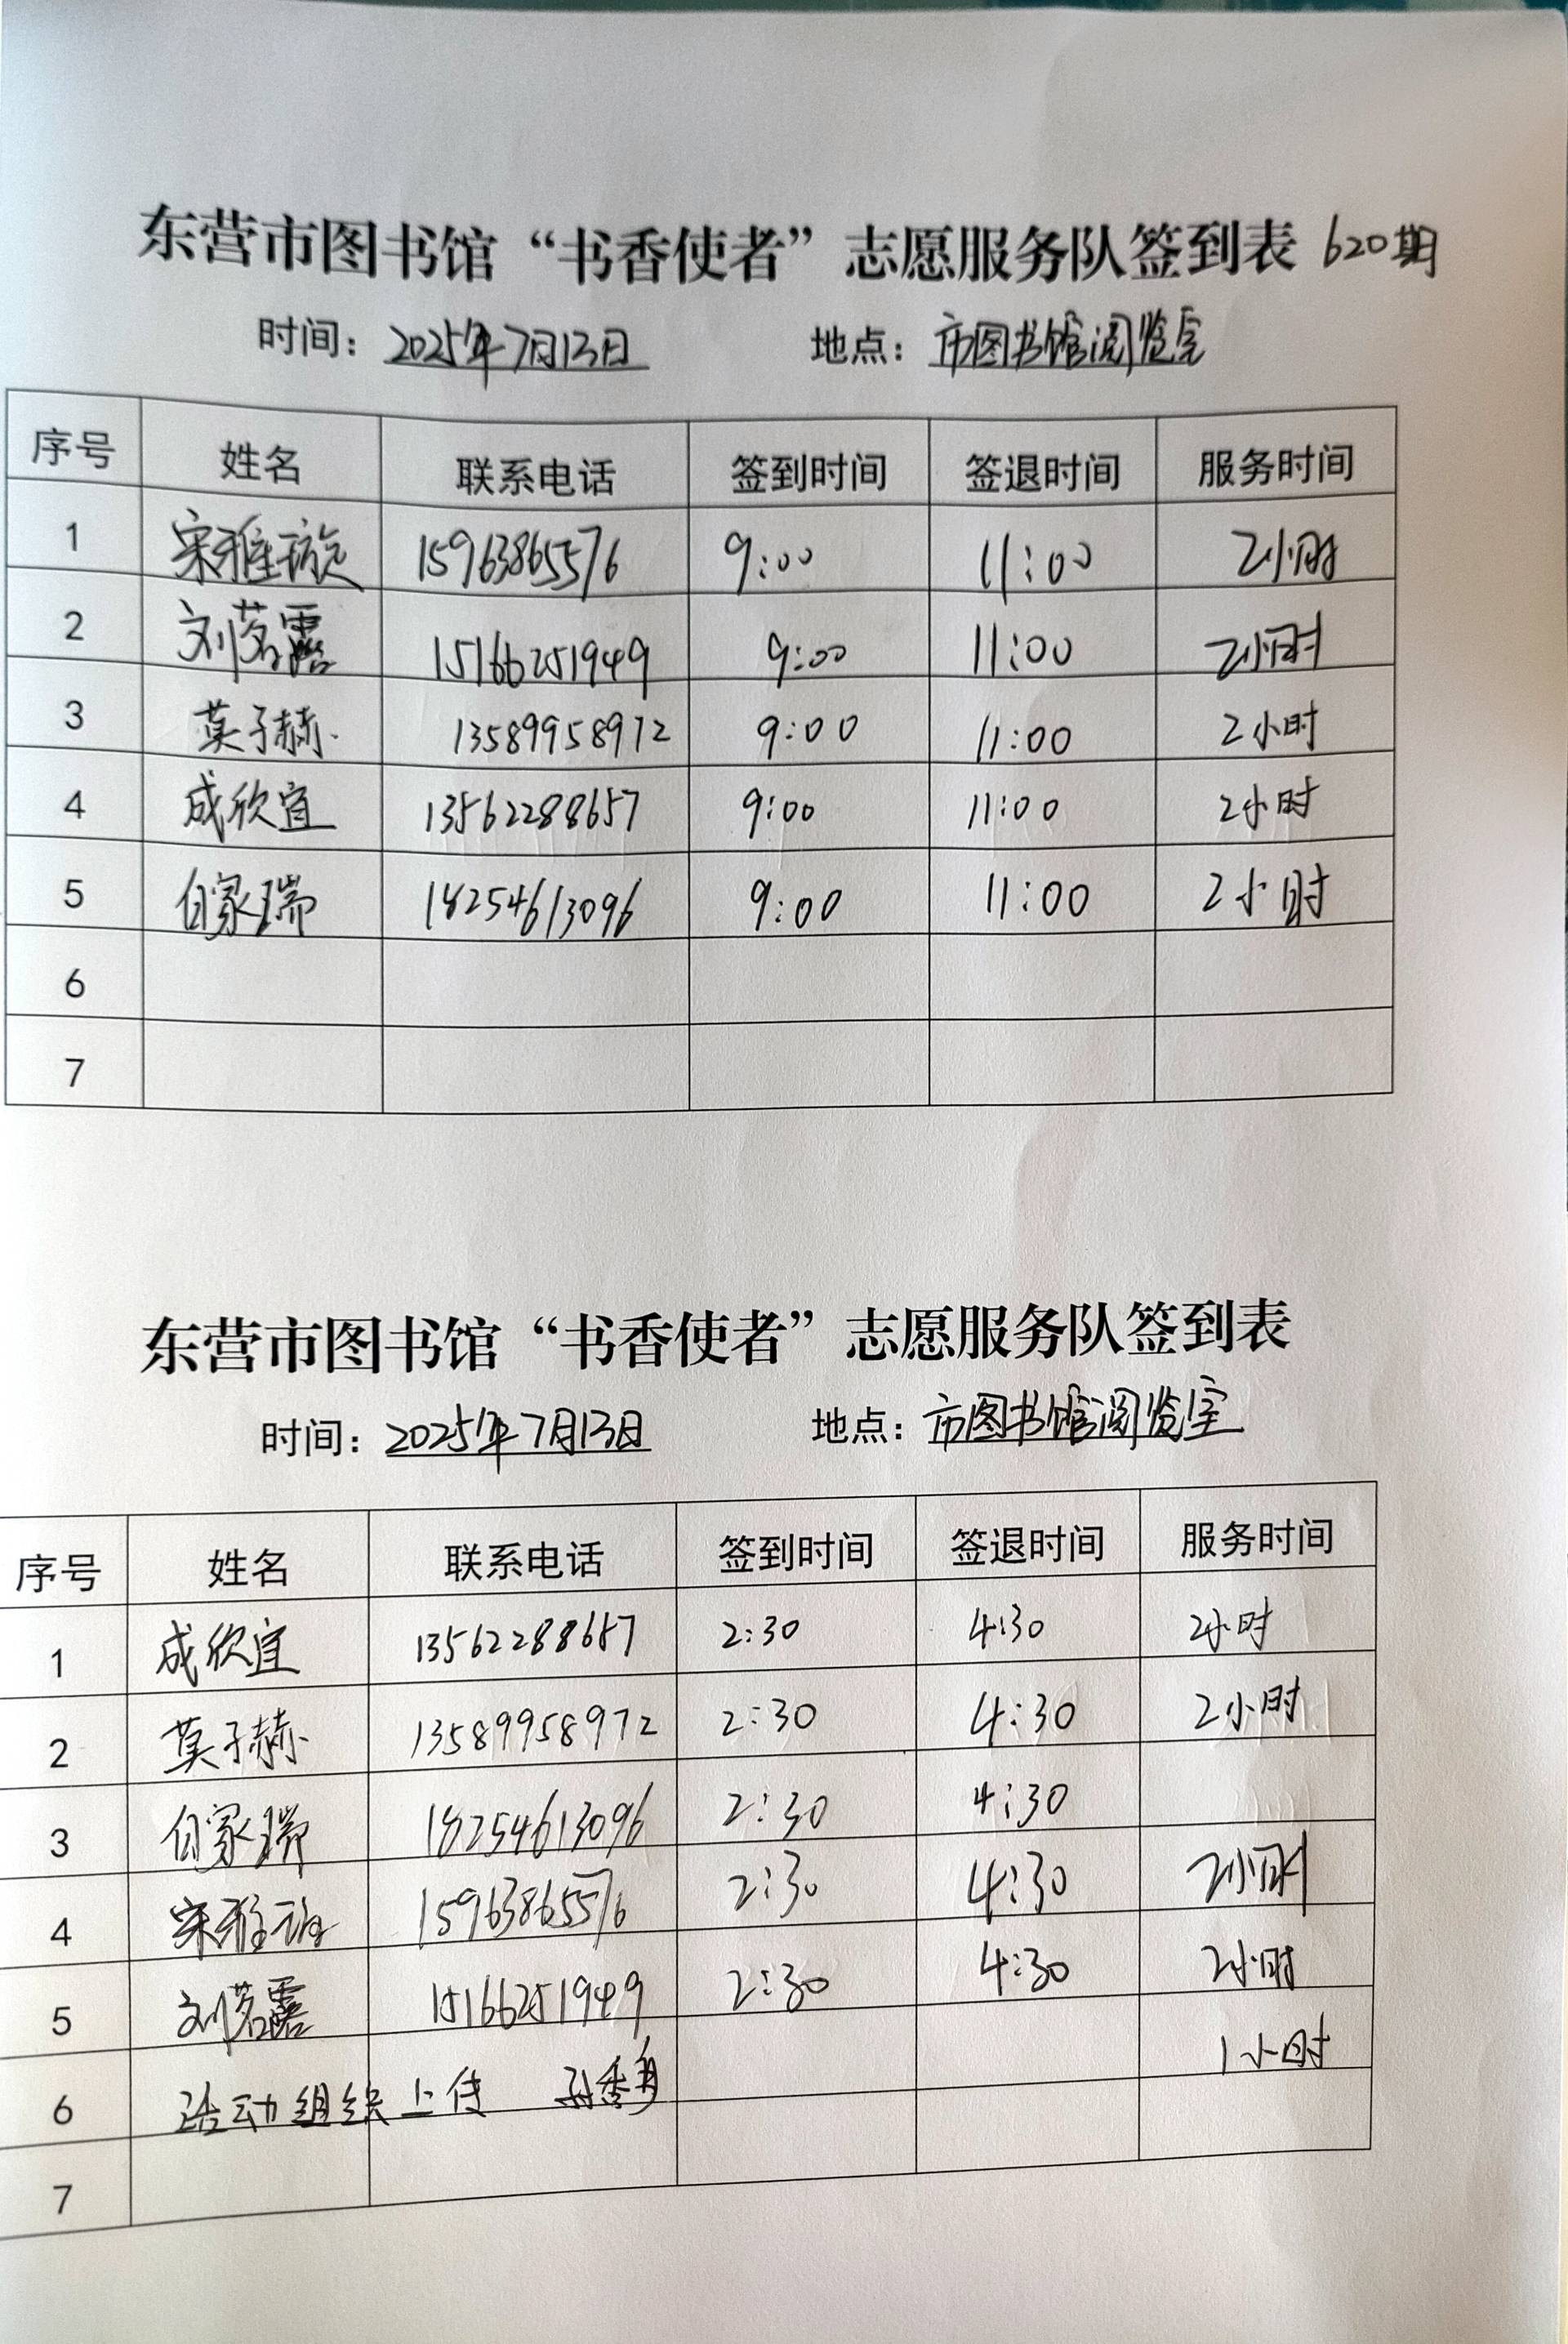 东营市图书馆“书香使者”志愿服务队签到表 620期
时间：2025年7月13日 地点：市图书馆阅览室
序号 姓名 联系电话 签到时间 签退时间 服务时间
1 宋雅璇 15963865576 9:00 11:00 2小时
2 刘茗露 15166251949 9:00 11:00 2小时
3 莫子赫 13589958972 9:00 11:00 2小时
4 成欣宜 13562288657 9:00 11:00 2小时
5 白家瑞 18254613096 9:00 11:00 2小时
6
7
东营市图书馆“书香使者”志愿服务队签到表
时间：2025年7月13日 地点：市图书馆阅览室
序号 姓名 联系电话 签到时间 签退时间 服务时间
1 成欣宜 13562288657 2:30 4:30 2小时
2 莫子赫 13589958972 2:30 4:30 2小时
3 白家瑞 18254613096 2:30 4:30
4 宋雅璇 15963865576 2:30 4:30 2小时
5 刘茗露 15166251949 2:30 4:30 2小时
6 活动组织上传 1小时
7